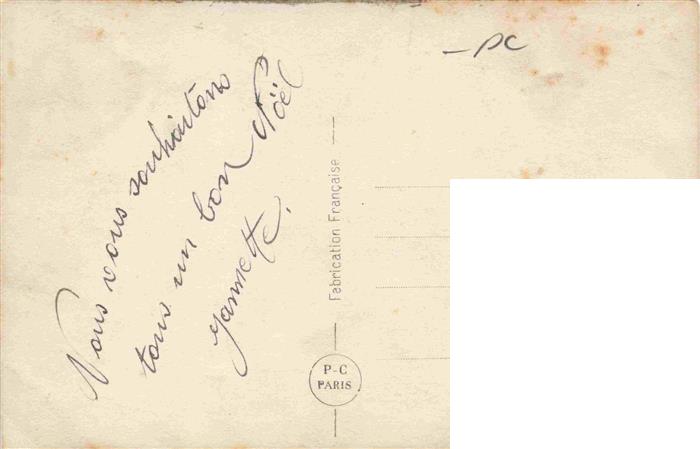 Vous vous souhaitons
tous un bon Noël
yannette.
PC
Fabrication Française
P-C
PARIS